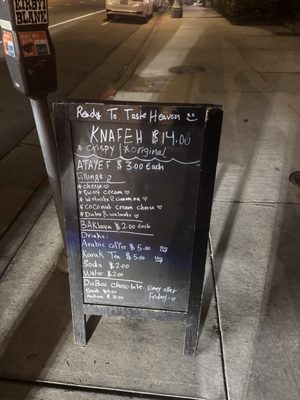 KIRBY
BLANK
Ready To Taste Heaven
KNAFEH $14.00
*crispy *original
ATAYEF $3.00 Each
Fillings:
*cheese
*sweet cream
*walnuts & cinnamon
*coconut cream cheese
*Dubai & coolants
BAKlava $2.00 Each
Drinks:
Arabic coffee $5.00
Karak Tea $5.00
Soda $2.00
Water $2.00
DuBai chocolate
Small
Medium